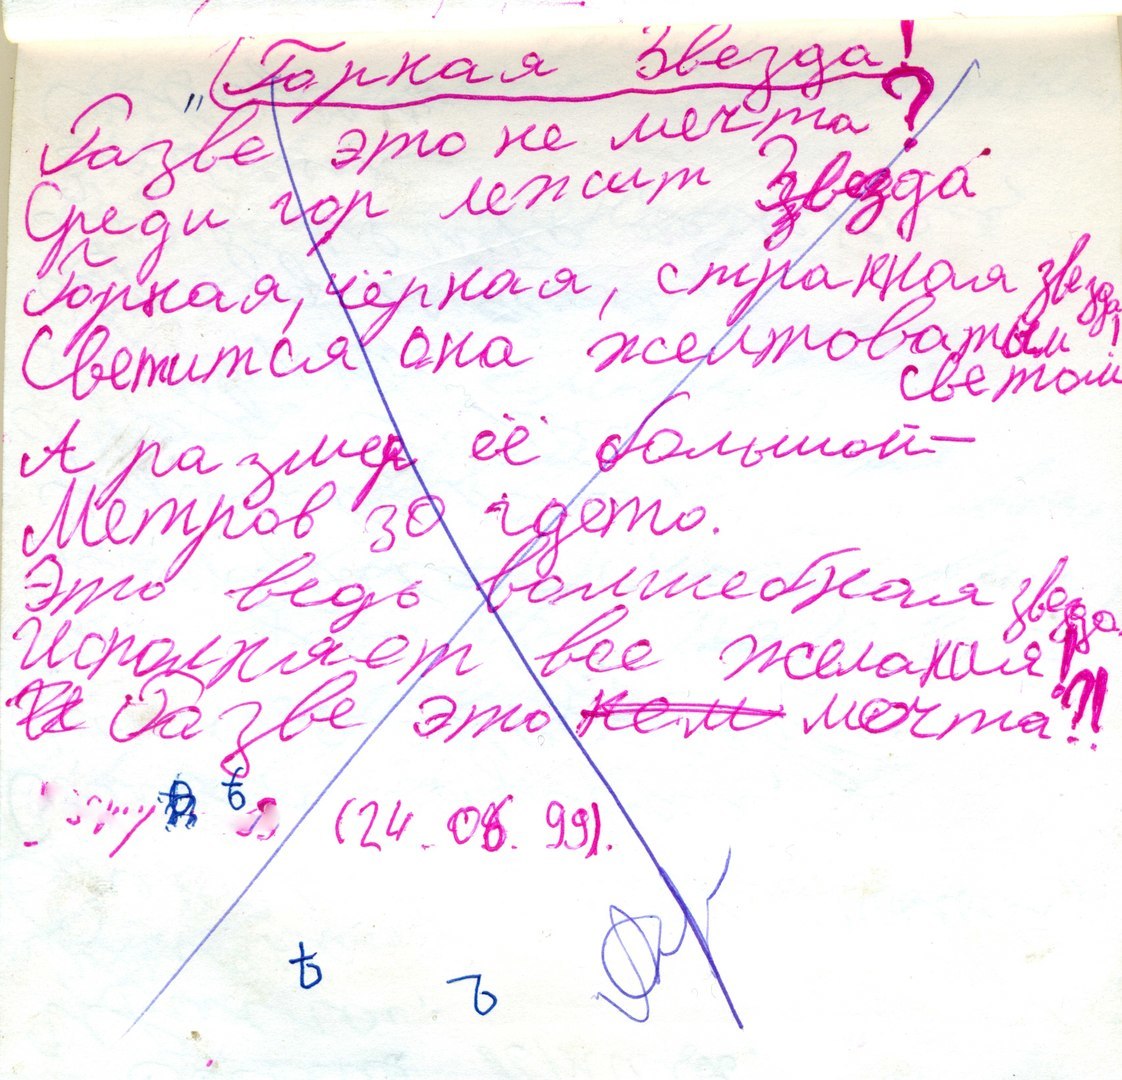 „Горная Звезда!
Разве это не мечта?
Среди гор лежит Звезда
Горная, чёрная, странная звезда!
Светится она желтоватым
светом
А размер её большой–
Метров 30 гдето.
Это ведь волшебная звезда.
Исполняет все желания!
Разве это нем мечта?!
(24. 08. 99).
ѣ
ъ